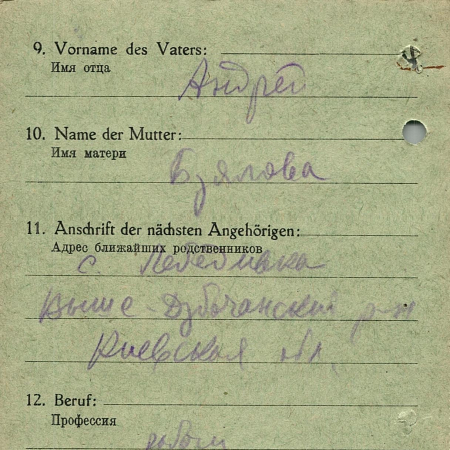 9. Vorname des Vaters:
Имя отца
Андрей
10. Name der Mutter:
Имя матери
Бзялова
11. Anschrift der nächsten Angehörigen:
Адрес ближайших родственников
с. Лебедивка
Выше-Дубечанский р-н
Киевская обл.
12. Beruf:
Профессия